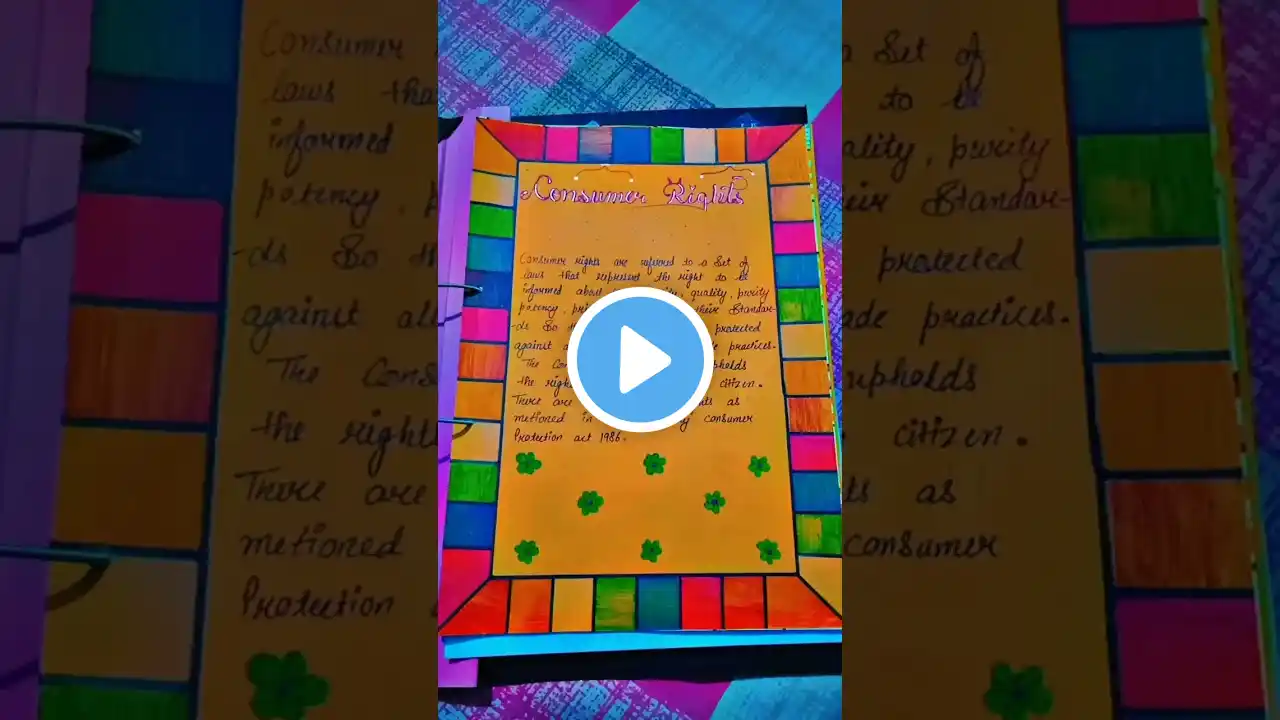 Consumer Rights
Consumer rights are referred to a Set of
laws that represent the right to be
informed about quality, purity
potency, their Standar-
-ds So protected
against practices.
The Cons upholds
the rights citizen.
There are as
metioned in consumer
Protection act 1986.